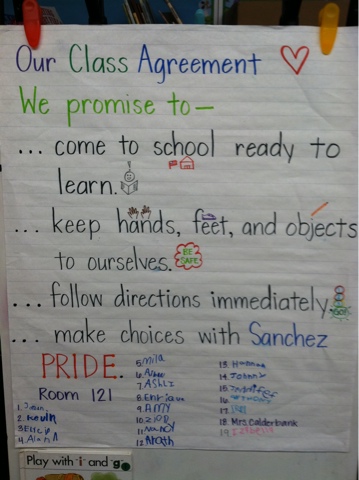 Our Class Agreement
We promise to—
... come to school ready to
learn.
... keep hands, feet, and objects
to ourselves.
BE SAFE
... follow directions immediately
... make choices with Sanchez
PRIDE.
Room 121
1.
2. Kevin
3. Emily
4. Alan A
5. Mila
6.
7. Ashly
8. Enrique
9. Amy
10.
11. Nancy
12.
13. Hannah
14. Johnny
15. Jennifer
16. Anthony
17.
18. Mrs Calderbank
19.
Play with -i- and -g-